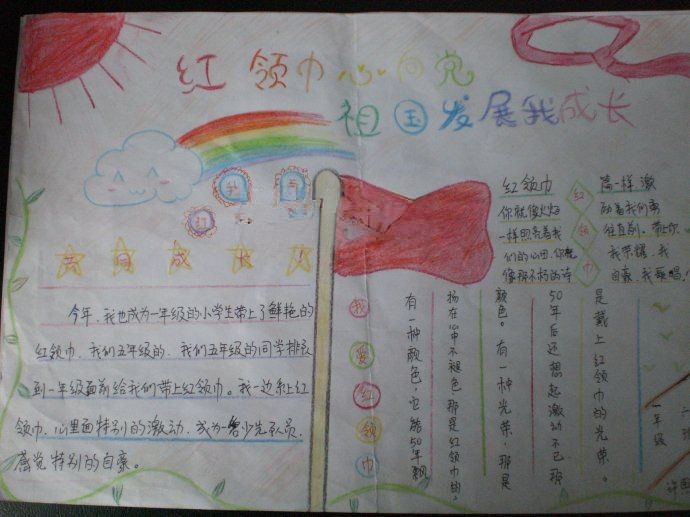 红领巾心向党
祖国发展我成长
共同成长！
今年，我也成为一年级的小学生带上了鲜艳的
红领巾，我们五年级的，我们五年级的同学排良
到一年级面前给我们带上红领巾。我一边系上红
领巾，心里面特别的激动，成为一名少先队员，
感觉特别的自豪。
红领巾
你就像火焰
一样照亮着我
们的心田，你就
像那不朽的诗
红领巾
篇一样激
励着我们勇
往直前。带上你
我荣耀，我
自豪，我歌唱！
我爱红领巾
是戴上红领巾的光荣。
50年后还想起激动不已，那
颜色。有一种光荣，那是
扬在心中不褪色，那是红领巾的
有一种颜色，它能50年飘
一年级